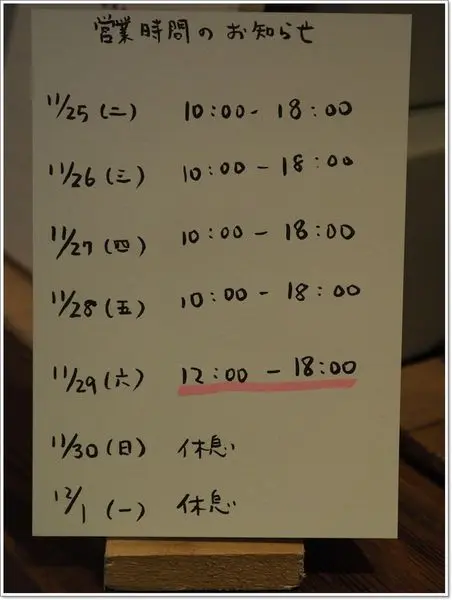 営業時間のお知らせ
11/25(二) 10:00 - 18:00
11/26(三) 10:00 - 18:00
11/27(四) 10:00 - 18:00
11/28(五) 10:00 - 18:00
11/29(六) 12:00 - 18:00
11/30(日) 休息
12/1(一) 休息